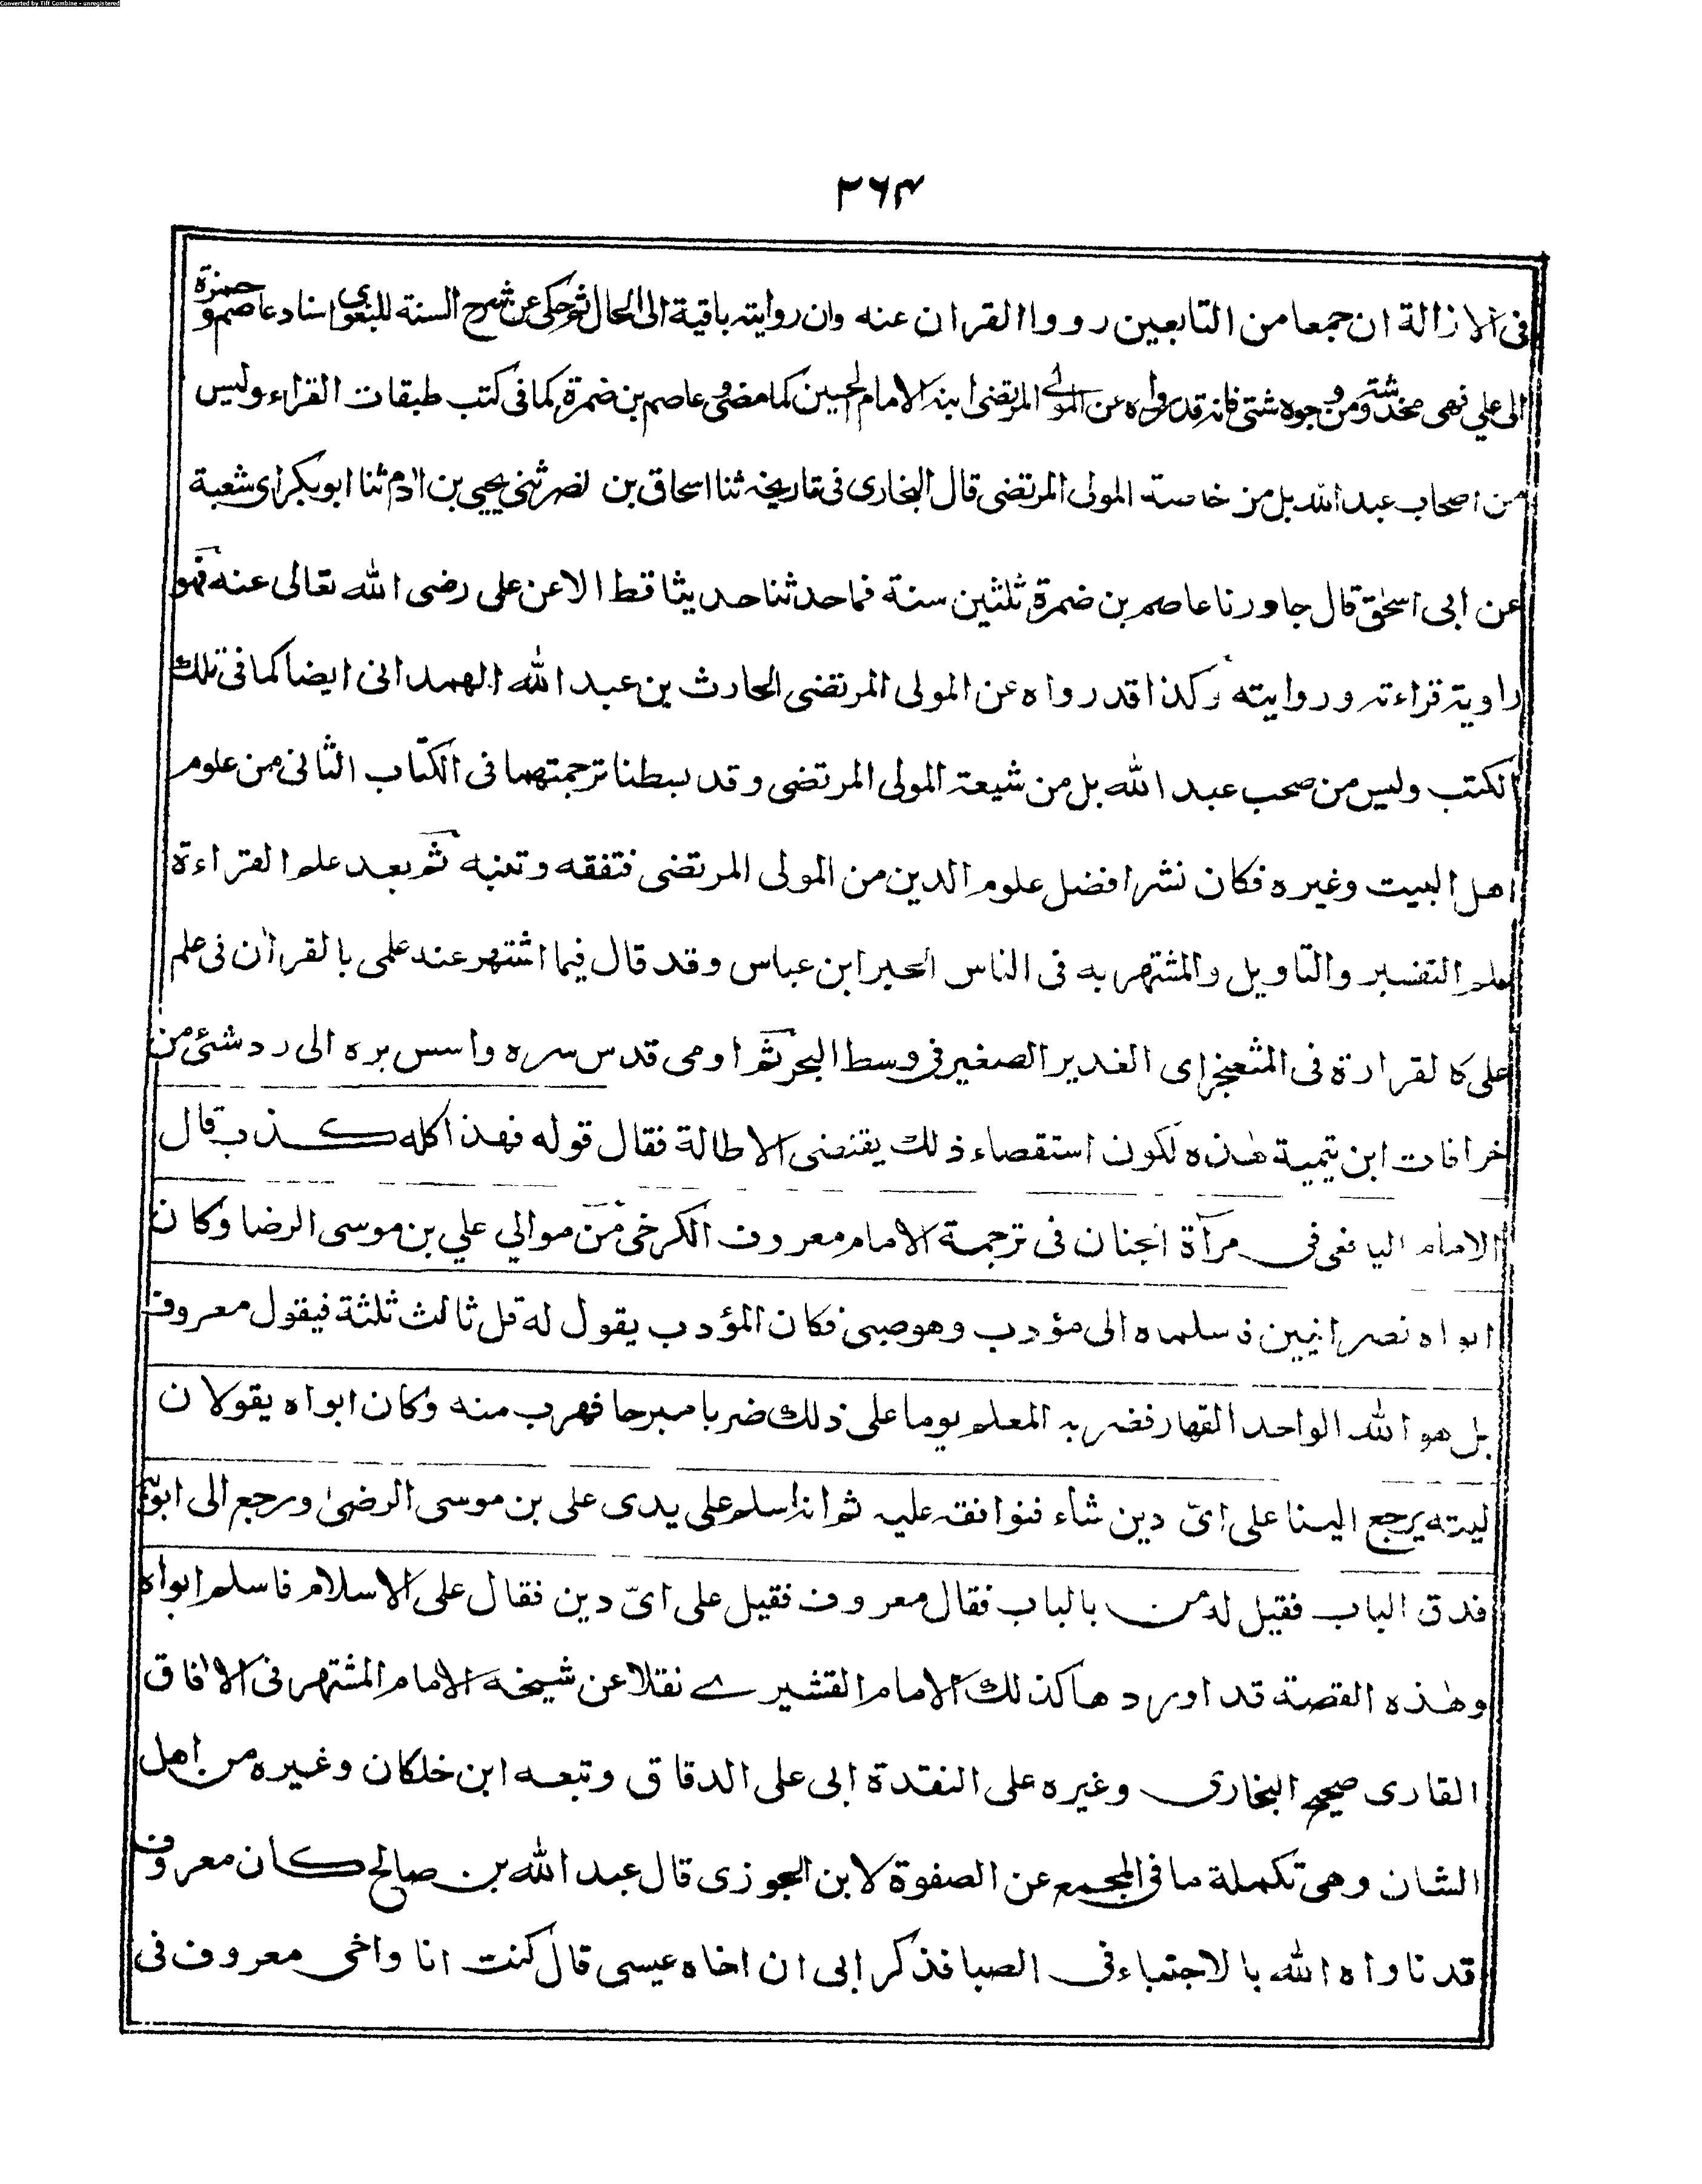 Converted by Tiff Combine - unregistered
٢٦٤
فى الازالة ان جمعا من التابعين رووا القران عنه وان روايته باقية الى الحال ثم حكى عن شرح السنة للبغوى اسناد عاصم و حمزة
الى علي فهى مخدشة ومن وجوه شتى فانه قد رواه عن المولى المرتضى ابنه الامام الحسين كما مضى و عاصم بن ضمرة كما فى كتب طبقات القراء وليس
من اصحاب عبد الله بل من خاصة المولى المرتضى قال البخارى فى تاريخه ثنا اسحاق بن نصر ثنى يحيى بن ادم ثنا ابو بكر اى شعبة
عن ابى اسحٰق قال جاورنا عاصم بن ضمرة ثلثين سنة فما حدثنا حديثا قط الا عن على رضى الله تعالى عنه فهو
راوية قراءته وروايته وكذا قد رواه عن المولى المرتضى الحارث بن عبد الله الهمدانى ايضا كما فى تلك
الكتب وليس من صحب عبد الله بل من شيعة المولى المرتضى وقد بسطنا ترجمتهما فى الكتاب الثانى من علوم
اهل البيت وغيره فكان نشر افضل علوم الدين من المولى المرتضى فتفقه وتنبه ثم بعد علم القراءة
علم التفسير والتاويل والمشتهر به فى الناس الحبر ابن عباس وقد قال فيما اشتهر عند علمى بالقراٰن فى علم
على كالقرارة فى المثعنجر اى الغدير الصغير فى وسط البحر ثم اومى قدس سره واسس بره الى رد شئ من
خرافات ابن تيمية هٰذه لكون استقصاء ذلك يقتضى الاطالة فقال قوله فهذا كله كذب قال
الامام اليافعى فى مرآة الجنان فى ترجمة الامام معروف الكرخى من موالي علي بن موسى الرضا وكان
ابواه نصرانيين فسلماه الى مؤدب وهو صبى فكان المؤدب يقول له قل ثالث ثلثة فيقول معروف
بل هو الله الواحد القهار فضربه المعلم يوما على ذلك ضربا مبرحا فهرب منه وكان ابواه يقولان
ليته يرجع الينا على اىّ دين شاء فنوافقه عليه ثم انه اسلم على يدى على بن موسى الرضىٰ ورجع الى ابويه
فدق الباب فقيل له من بالباب فقال معروف فقيل على اىّ دين فقال على الاسلام فاسلم ابواه
وهٰذه القصة قد اوردها كذلك الامام القشيرے نقلا عن شيخه الامام المشتهر فى الاٰفاق
القارى صحيح البخارى وغيره على النقدة ابى على الدقاق وتبعه ابن خلكان وغيره من اهل
الشان وهى تكملة ما فى المجمع عن الصفوة لابن الجوزى قال عبد الله بن صالح كان معروف
قد ناواه الله بالاجتباء فى الصبا فذكر ابى ان اخاه عيسى قال كنت انا واخى معروف فى